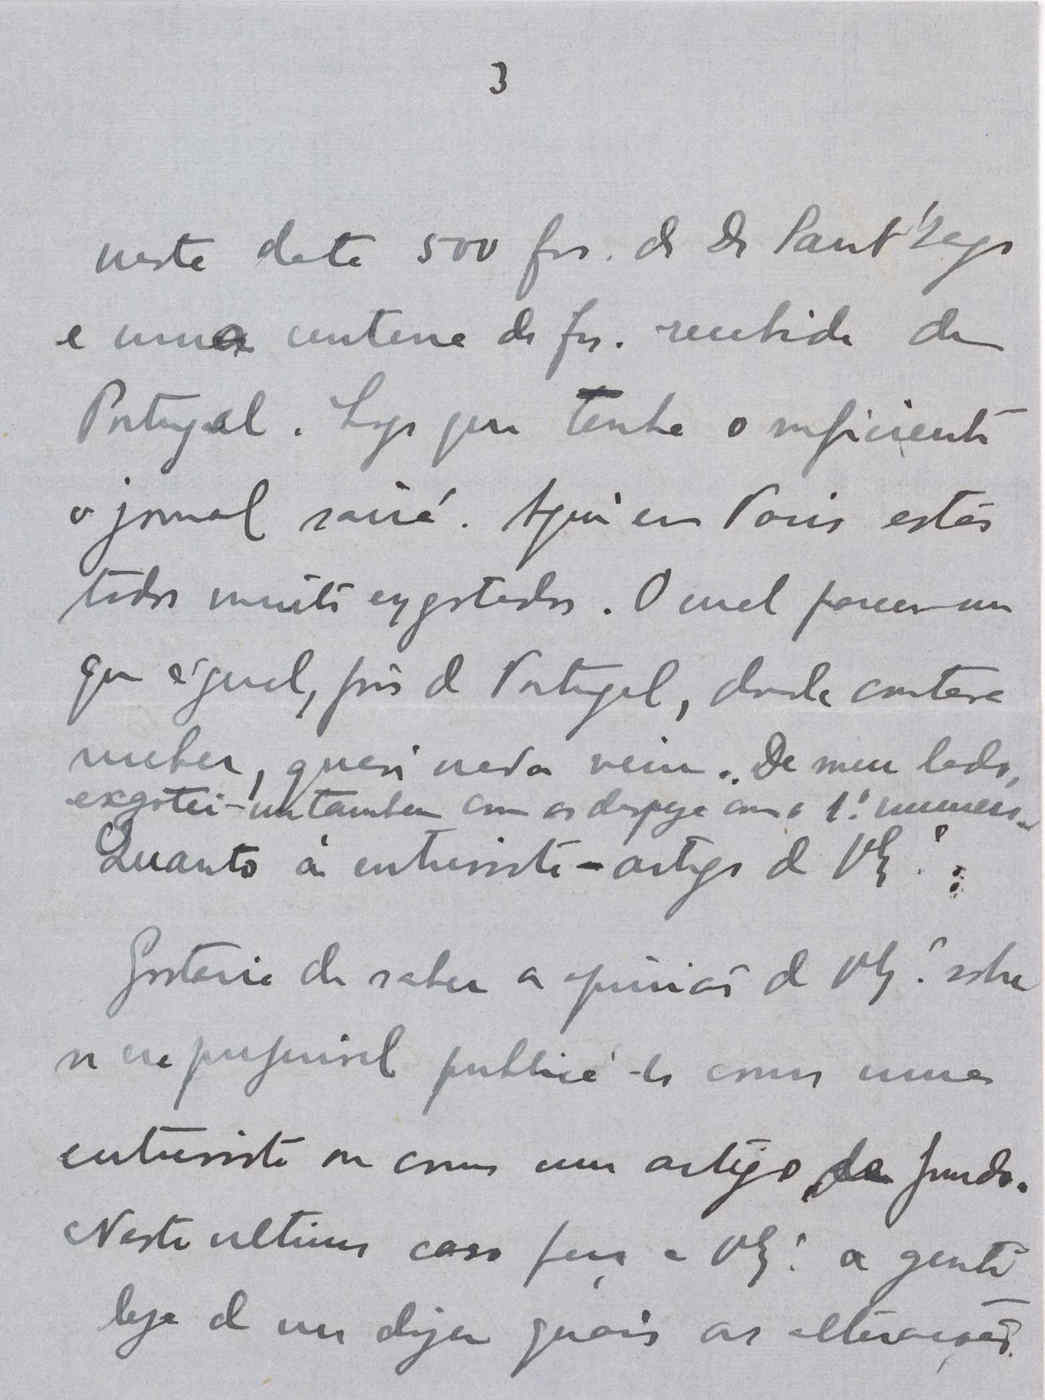 3
nesta data 500 frs. do Dr Sant'Iago
e uma centena de frs. recebida de
Portugal. Logo que tenha o suficiente
o jornal sairá. Aqui em Paris estão
todos muito exgotados. O mel parece-me
que é igual, pois de Portugal, donde contava
receber, quasi nada veiu. De meu lado,
exgotei-me tambem com as despezas com o 1.º numero.
Quanto á entrevista-artigo de V. Ex.ª:
Gostaria de saber a opinião de V. Ex.ª sobre
se era preferivel publicá-lo como uma
entrevista ou como um artigo de fundo.
Neste ultimo caso peço a V. Ex.ª a genti
leza de me dizer quais as alterações